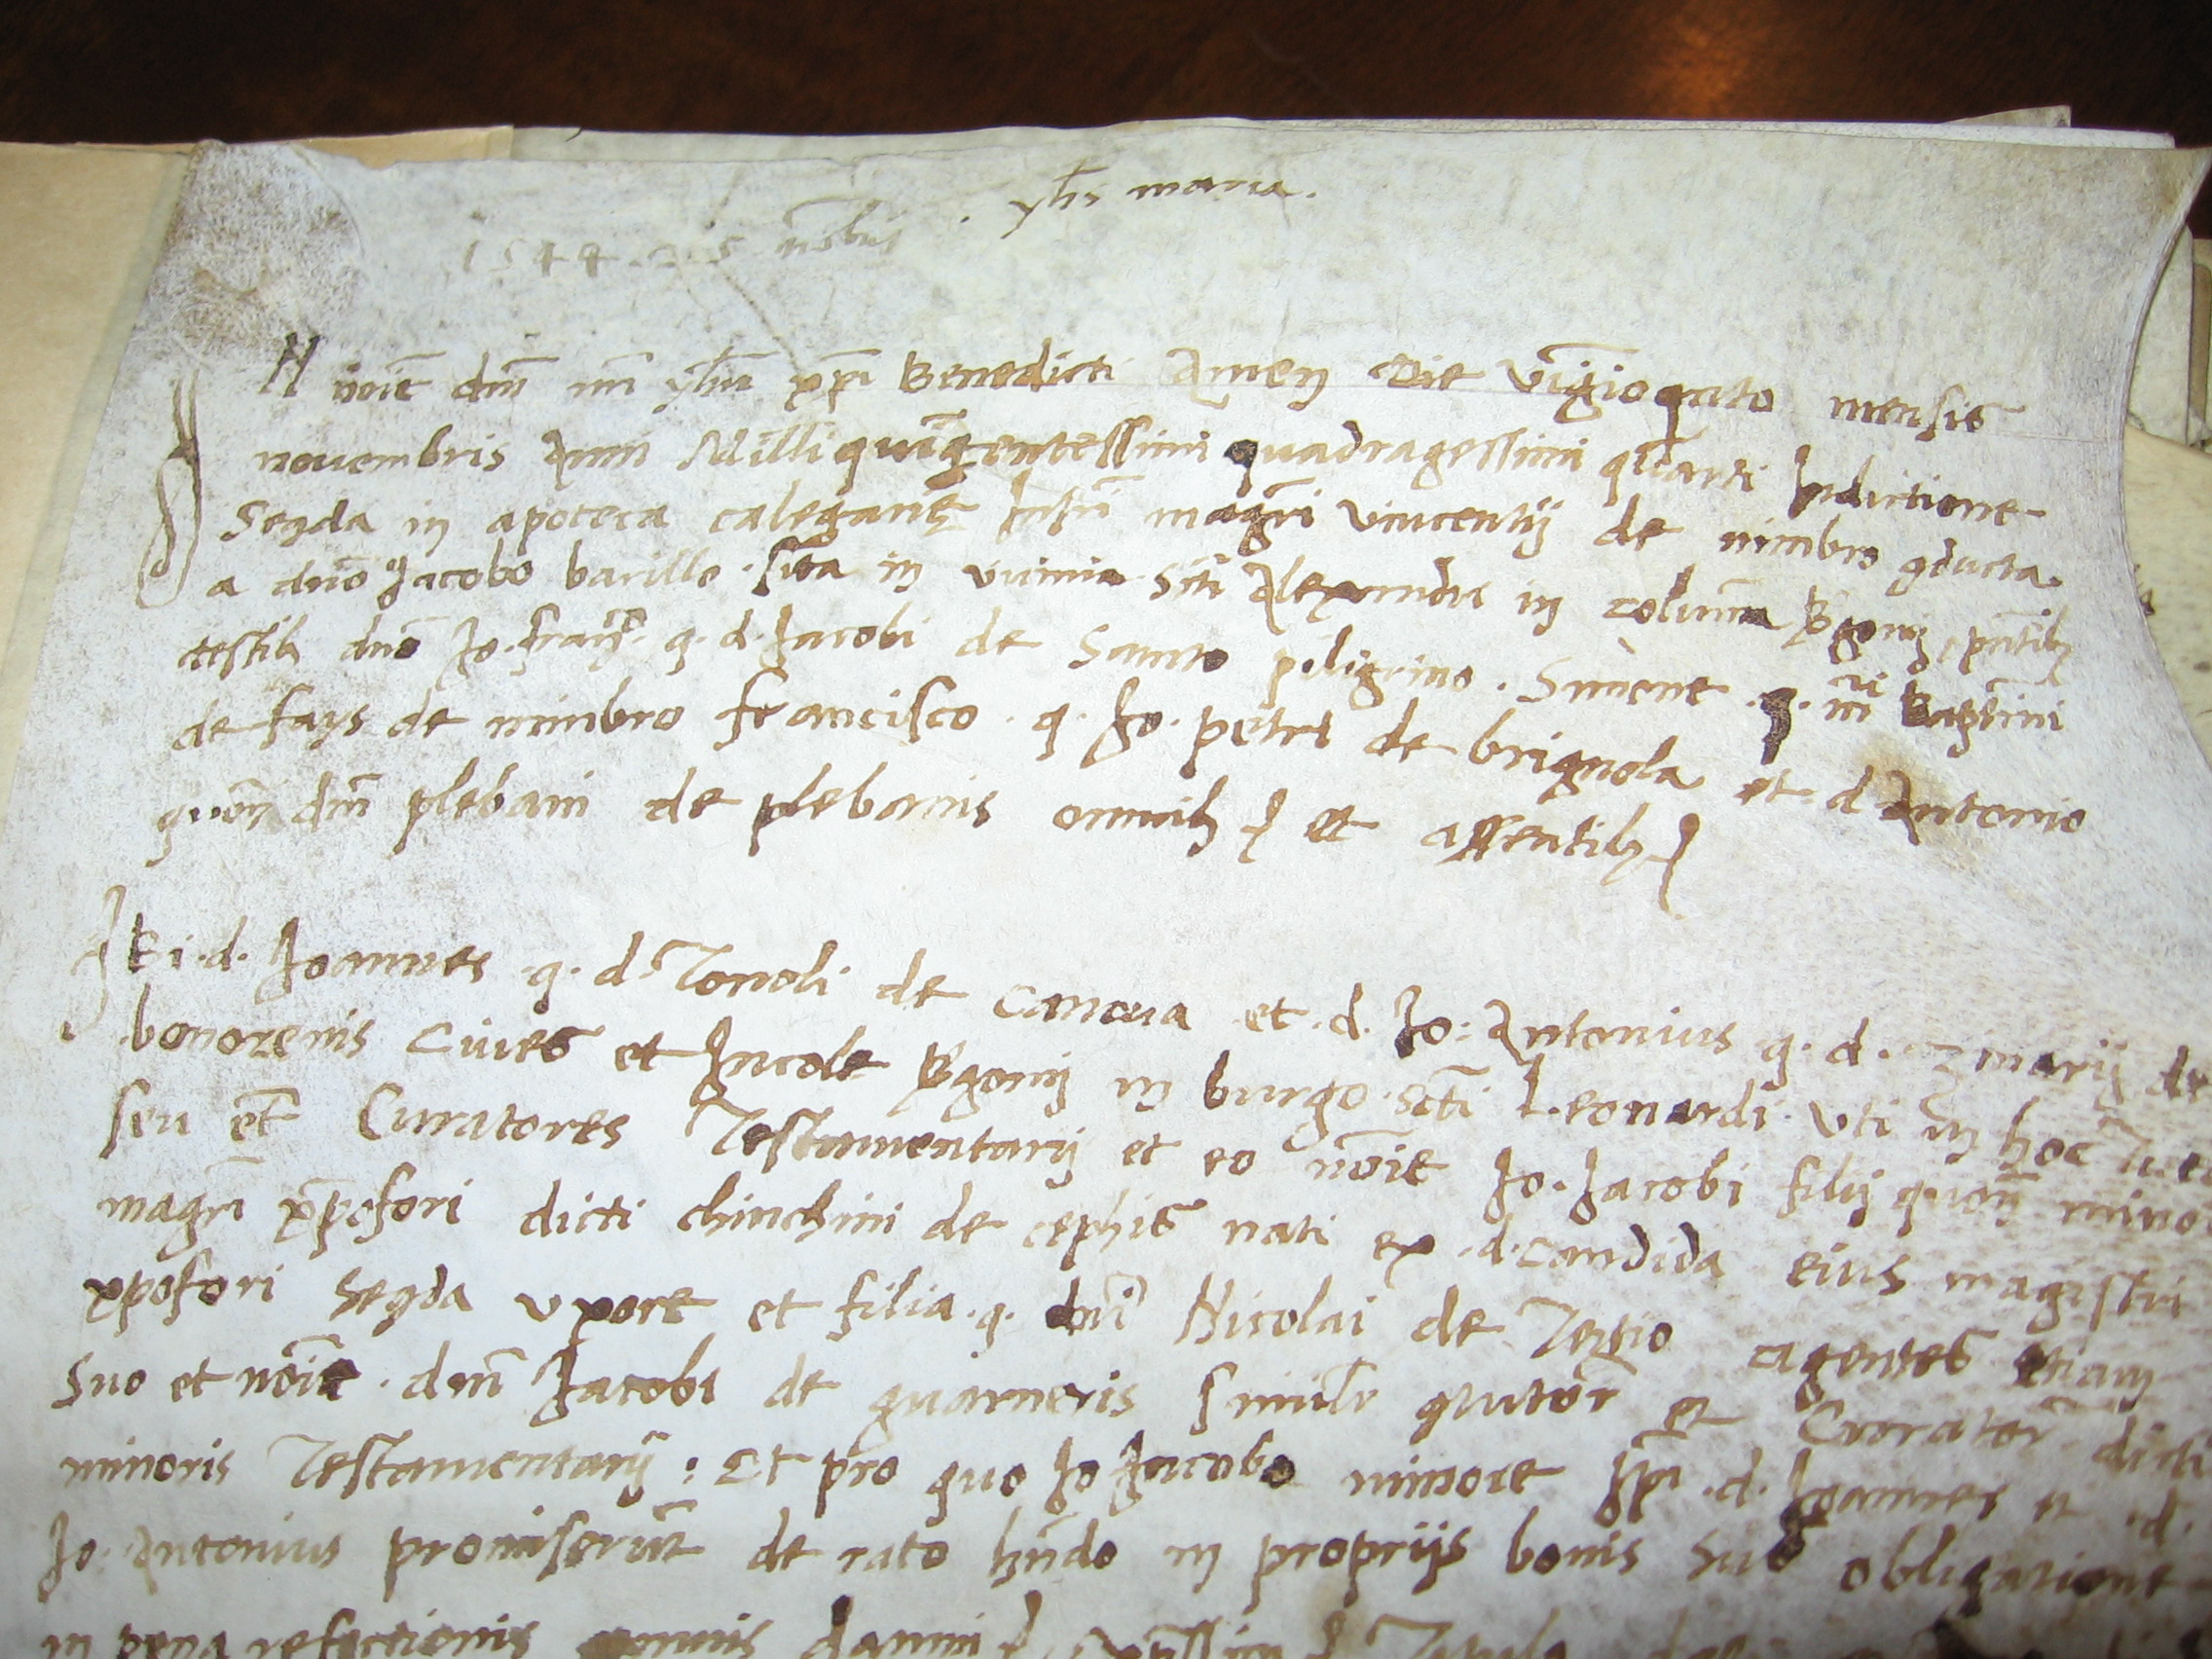 . yhs maria.
1544. 25 nobris
IN noie dni nri yhu xpi Benedicti Amen Die vigioquto mensis
novembris Anni Milli quigentessimi quadragessimi quarti Indictione
Segda in apoteca calegarie magri vincentij de nimbro gducta
a dno Jacobo barillo. sita in vicinia scti Alexandri in colunna Bgomj, pntibz
testibz dno Jo. franco. q. d. Jacobi de Sancto peligrino. Simone. q. Baptini
de fays de nimbro francisco. q. Jo. petri de brignola et. d Antonio
quon dni plebani de plebanis omnibz et assentibz
IBi. d. Joannes q. d. Tonoli de canova et. d. Jo: Antonius q. d. marij de
bonorenis Cives et Incole Bgomj in burgo scti Leonardi. uti in hoc
seu et Curatores Testamentarij et eo noie Jo. Jacobi filij quon mino
magri xpofori dicti chinchini de cephis nati ex. d. candida eius magistri
xpofori segda uxore et filia. q. dni Nicolai de Tertio agentes etiam
suo et noie. dni Jacobi de guarneris similr qtutor et Curator dicti
minoris Testamentarij: Et pro quo Jo Jacobo minore ipi. d. Joannes et. d.
Jo. Antonius promiserut de rato hndo in proprijs bonis suis obligatione
in pena refectionis omnis damni